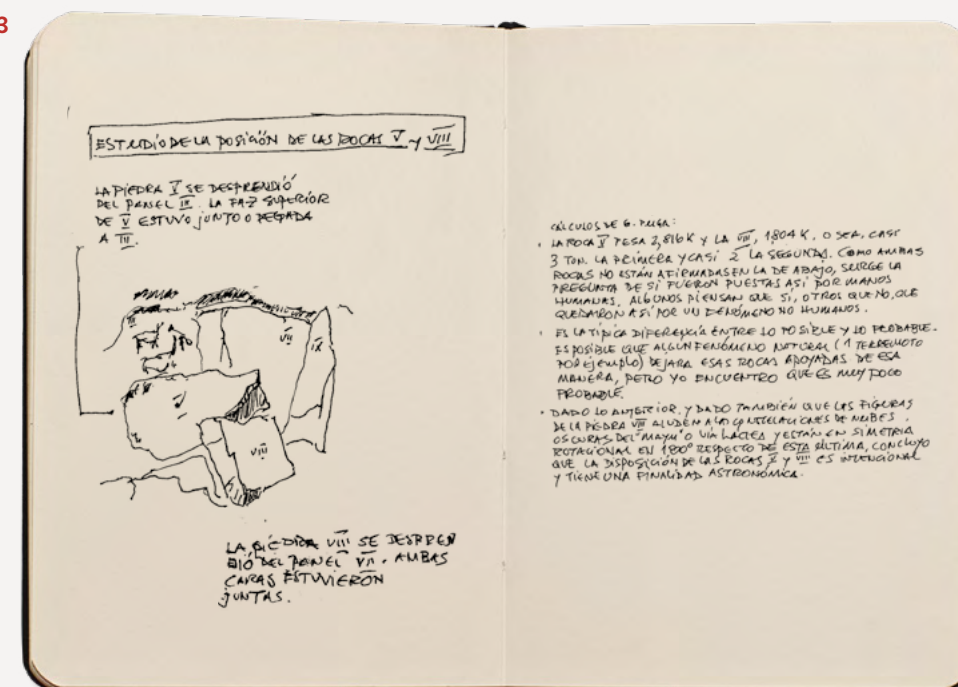 3
ESTUDIO DE LA POSICIÓN DE LAS ROCAS V Y VIII
LA PIEDRA V SE DESPRENDIÓ
DEL PANEL IX. LA FAZ SUPERIOR
DE V ESTUVO JUNTO O PEGADA
A III.
III
VII
IX
V
VIII
LA PIEDRA VIII SE DESPREN
DIÓ DEL PANEL VII. AMBAS
CARAS ESTUVIERON
JUNTAS.
CÁLCULOS DE G. PUGA:
• LA ROCA V PESA 2,816 K Y LA VIII, 1,804 K, O SEA, CASI
3 TON. LA PRIMERA Y CASI 2 LA SEGUNDA. COMO AMBAS
ROCAS NO ESTÁN AFIRMADAS EN LA DE ABAJO, SURGE LA
PREGUNTA DE SI FUERON PUESTAS ASÍ POR MANOS
HUMANAS, ALGUNOS PIENSAN QUE SI, OTROS QUE NO, QUE
QUEDARON ASÍ POR UN FENÓMENO NO HUMANOS.
• ES LA TÍPICA DIFERENCIA ENTRE LO POSIBLE Y LO PROBABLE.
ES POSIBLE QUE ALGUN FENÓMENO NATURAL (1 TERREMOTO
POR EJEMPLO) DEJARA ESAS ROCAS APOYADAS DE ESA
MANERA, PERO YO ENCUENTRO QUE ES MUY POCO
PROBABLE.
• DADO LO ANTERIOR, Y DADO TAMBIÉN QUE LAS FIGURAS
DE LA PIEDRA VIII ALUDEN A LAS CONSTELACIONES DE NUBES
OSCURAS DEL "MAYU" O VÍA LÁCTEA Y ESTÁN EN SIMETRIA
ROTACIONAL EN 180° RESPECTO DE ESTA ÚLTIMA, CONCLUYO
QUE LA DISPOSICIÓN DE LAS ROCAS V Y VIII ES INTENCIONAL
Y TIENE UNA FINALIDAD ASTRONÓMICA.